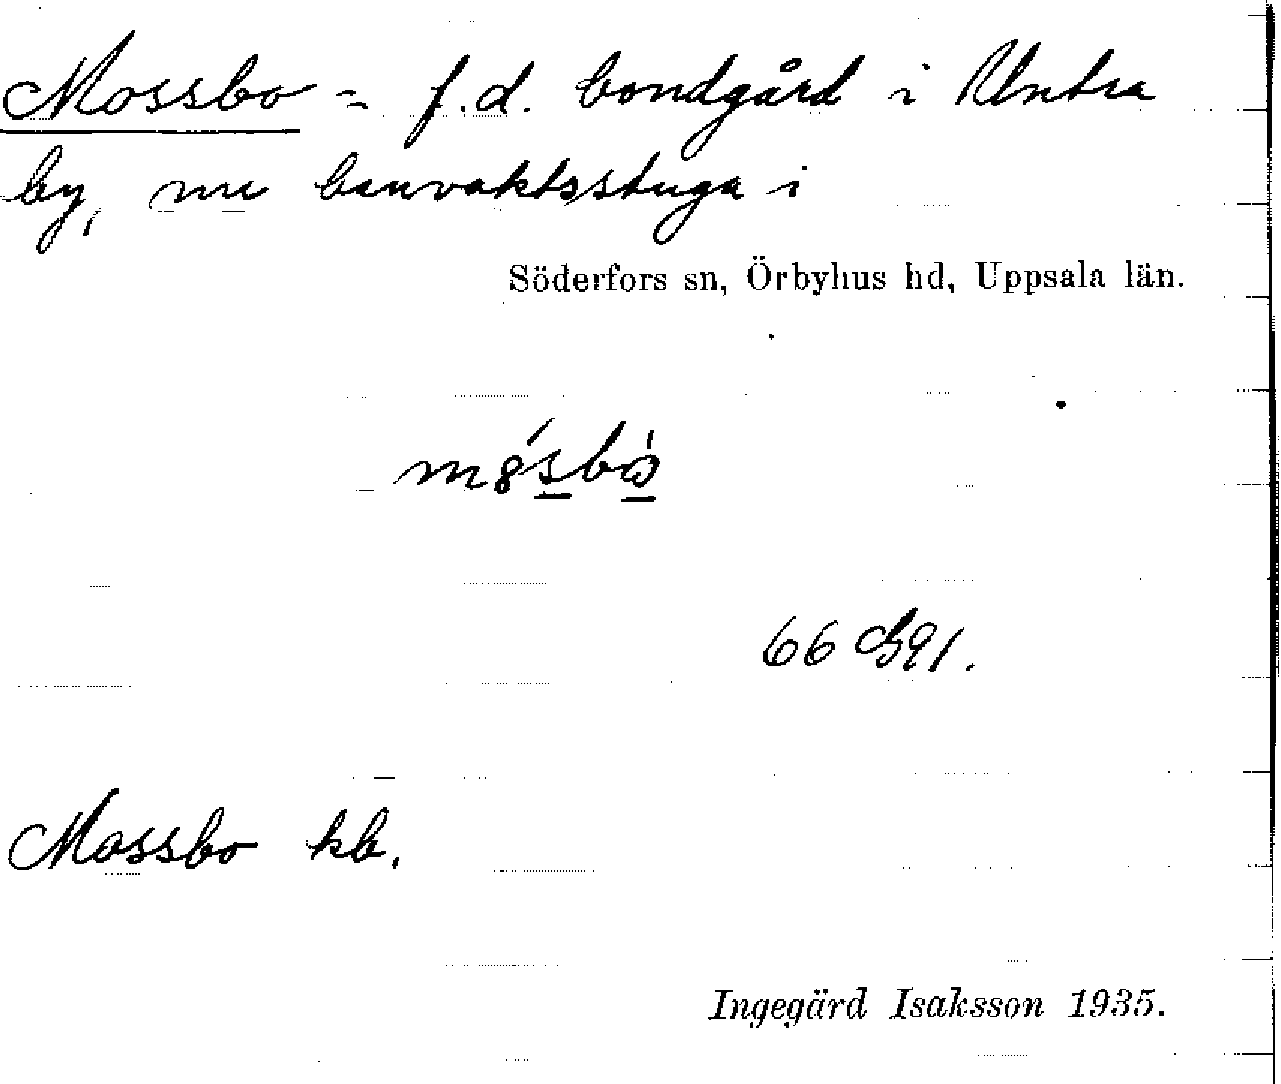 Mossbo = f.d. bondgård i Untra
by, nu banvaktsstuga i
Söderfors sn, Örbyhus hd, Uppsala län.
66
Mossbo kb.
Ingegärd Isaksson 1935.